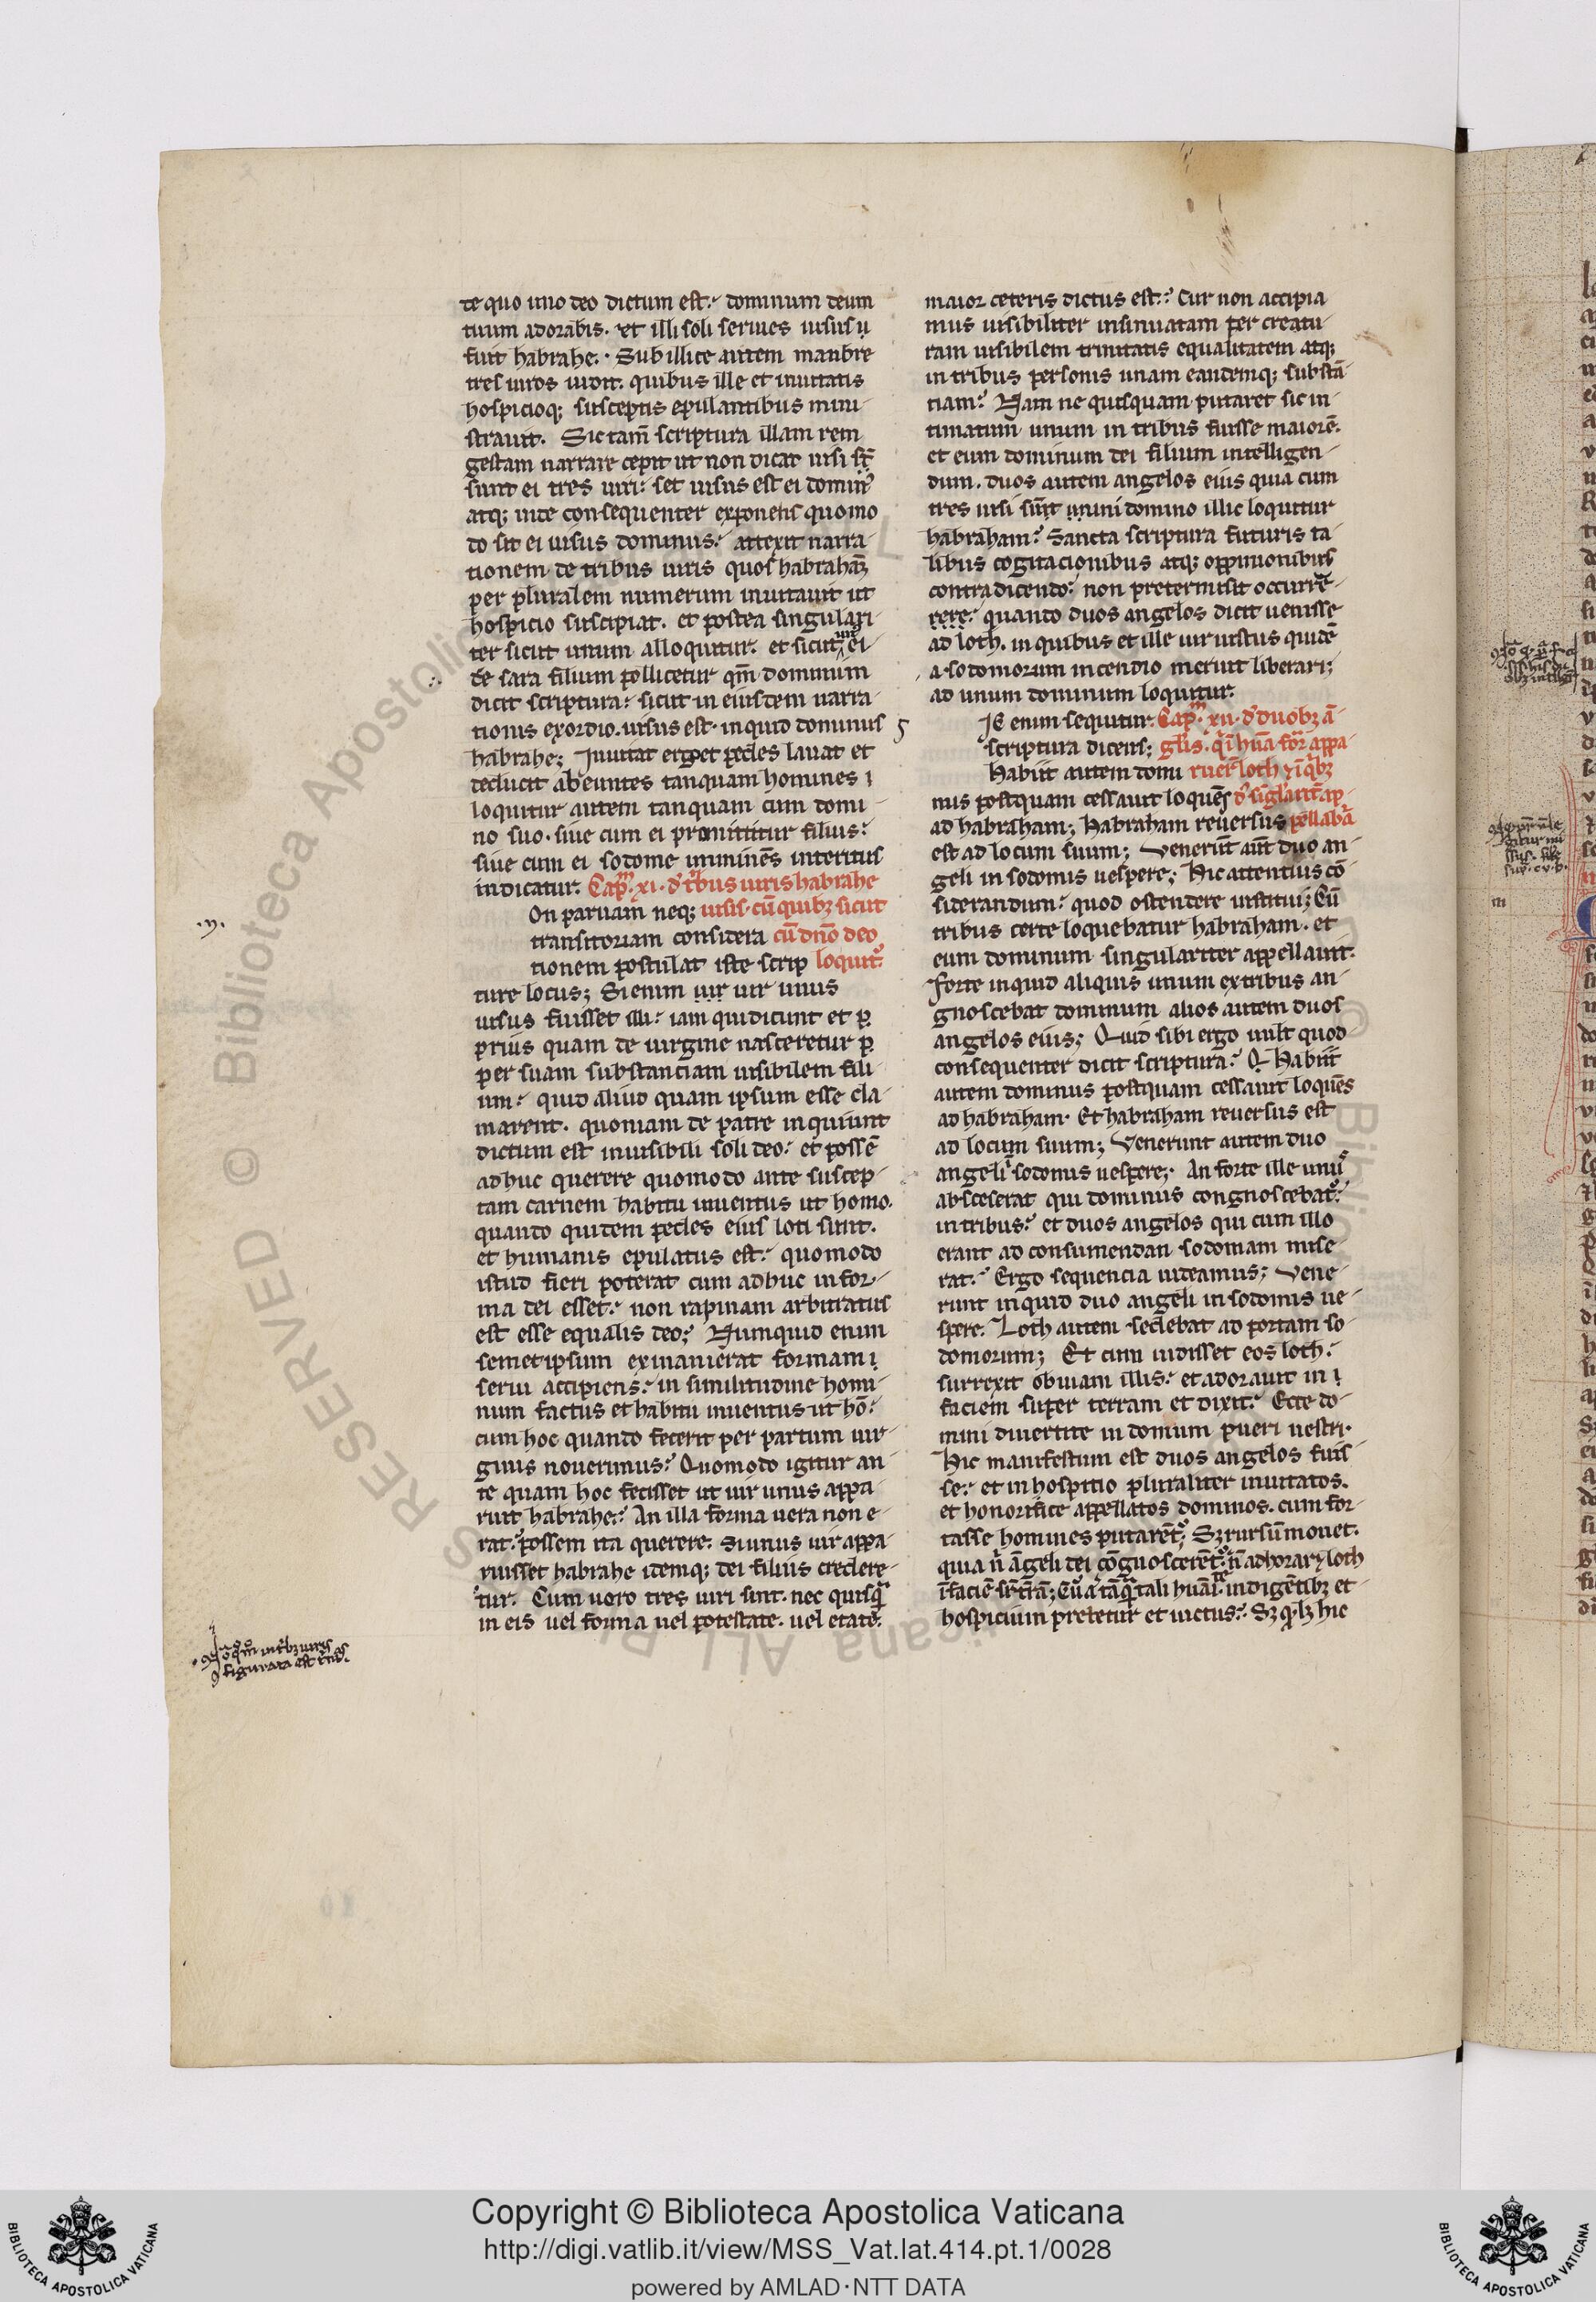 de quo uno deo dictum est. dominum deum
tuum adorabis. et illi soli servies visus ṇ
fuit habrahe. Sub illice autem manbre
tres viros vidit. quibus ille et invitatis
hospicioq; susceptis epulantibus mini-
stravit. Sic tam̄ scriptura illam rem
gestam narrare cepit ut non dicat visi
sunt ei tres viri: set visus est ei domin᷒
atq; inde consequenter exponens quomo
do sit ei visus dominus: attexit narra-
tionem de tribus viris quos habrahaꝫ
per pluralem numerum invitavit ut
hospicio suscipiat. et postea singulari-
ter sicut unum alloquitur. et sicut unus ei
de sara filium pollicetur qm̄ dominum
dicit scriptura: sicut in eiusdem narra-
tionis exordio. visus est inquid dominus
habrahe; Invitat ergo et pedes lavat et
deducit abeuntes tanquam homines ı
loquitur autem tanquam cum domi-
no suo. sive cum ei promittitur filius:
sive cum ei sodome imminēs interitus
indicatur. Cap̄m. xi. d' tribus viris habrahe
On parvam neq; visis. cū quibꝫ sicut
transitoriam considera cū dn̄o deo
tionem postulat iste scrip loquit᷒.
ture locus; Si enim ụịṛ vir unus
visus fuisset illi: iam qui dicunt et ꝑ
prius quam de virgine nasceretur ꝑ
per suam substanciam visibilem fili-
um: quid aliud quam ipsum esse cla-
marent. quoniam de patre inquiunt
dictum est invisibili soli deo: et possē
adhuc querere quomodo ante suscep-
tam carnem habitu inventus ut homo.
quando quidem pedes eius loti sunt.
et humanis epulatus est: quomodo
istud fieri poterat cum adhuc in for-
ma dei esset: non rapinam arbitratus
est esse equalis deo; Numquid enim
semetipsum exinanierat formam ı
servi accipiens: in similitudine homi-
num factus et habitu inventus ut hō:
cum hoc quando fecerit per partum vir-
ginis noverimus: Quomodo igitur an-
te quam hoc fecisset ut vir unus appa-
ruit habrahe: An illa forma vera non e-
rat: possem ita querere. Si unus vir appa-
ruisset habrahe idemq; dei filius credere-
tur. Cum vero tres viri sint. nec quisqᷓ
in eis vel forma vel potestate. vel etate.
maior ceteris dictus est: Cur non accipia
mus visibiliter insinuatam per creatu-
ram visibilem trinitatis equalitatem atq;
in tribus personis unam eandemq; substā-
tiam: Nam ne quisquam putaret sic in-
timatum unum in tribus fuisse maiorē.
et eum dominum dei filium intelligen-
dum. duos autem angelos eius quia cum
tres visi sint uni domino illic loquitur
habraham: Sancta scriptura futuris ta-
libus cogitacionibus atq; oppinionibus
contradicendo: non pretermisit occurre-
rere: quando duos angelos dicit venisse
ad loth. in quibus et ille vir iustus quidē
a sodomorum incendio meruit liberari;
ad unum dominum loquitur.
Ic enim sequitur. Cap̄m. xii. d' duobꝫ ā-
scriptura dicens; gl'is. q̇ i hūa for̄ appa-
Habiit autem domi ruer̄ loth ⁊ ı̄ qͥbꝫ
nus postquam cessavit loquēs d's singl'ariter ap-
ad habraham; Habraham reversus pellabā
est ad locum suum; Venerūt aūt duo an-
geli in sodomis vespere; Hic attentius cō-
siderandum: quod ostendere institui; Cū
tribus certe loquebatur habraham. et
eum dominum singulariter appellavit.
Forte inquid aliquis unum ex tribus an-
gnoscebat dominum alios autem duos
angelos eius; Quid sibi ergo vult quod
consequenter dicit scriptura: Q Habiit
autem dominus postquam cessavit loquēs
ad habraham. Et habraham reversus est
ad locum suum; Venerunt autem duo
angeli ı̄ sodomis vespere; An forte ille unu᷒
absceserat qui dominus congnoscebat᷒
in tribus: et duos angelos qui cum illo
erant ad consumendan sodomam mise-
rat: Ergo sequencia videamus; Vene-
runt inquid duo angeli in sodomis ve-
spere. Loth autem sedebat ad portam so-
domorum; Et cum vidisset eos loth:
surrexit obviam illis: et adoravit in ı
faciem super terram et dixit: Ecce do-
mini divertite in domum pueri vestri.
Hic manifestum est duos angelos fuis-
se: et in hospitio pluraliter invitatos.
et honorifice appellatos dominos. cum for-
tasse homines putarēt᷒; Sꝫ rursū movet.
quia n̄ āgeli dei cōgnoscerēt᷒
hospicium pretetur et victus: Sꝫ
Copyright © Biblioteca Apostolica Vaticana
http://digi.vatlib.it/view/MSS_Vat.lat.414.pt.1/0028
powered by AMLAD·NTT DATA
BIBLIOTECA APOSTOLICA VATICANA
BIBLIOTECA APOSTOLICA VATICANA